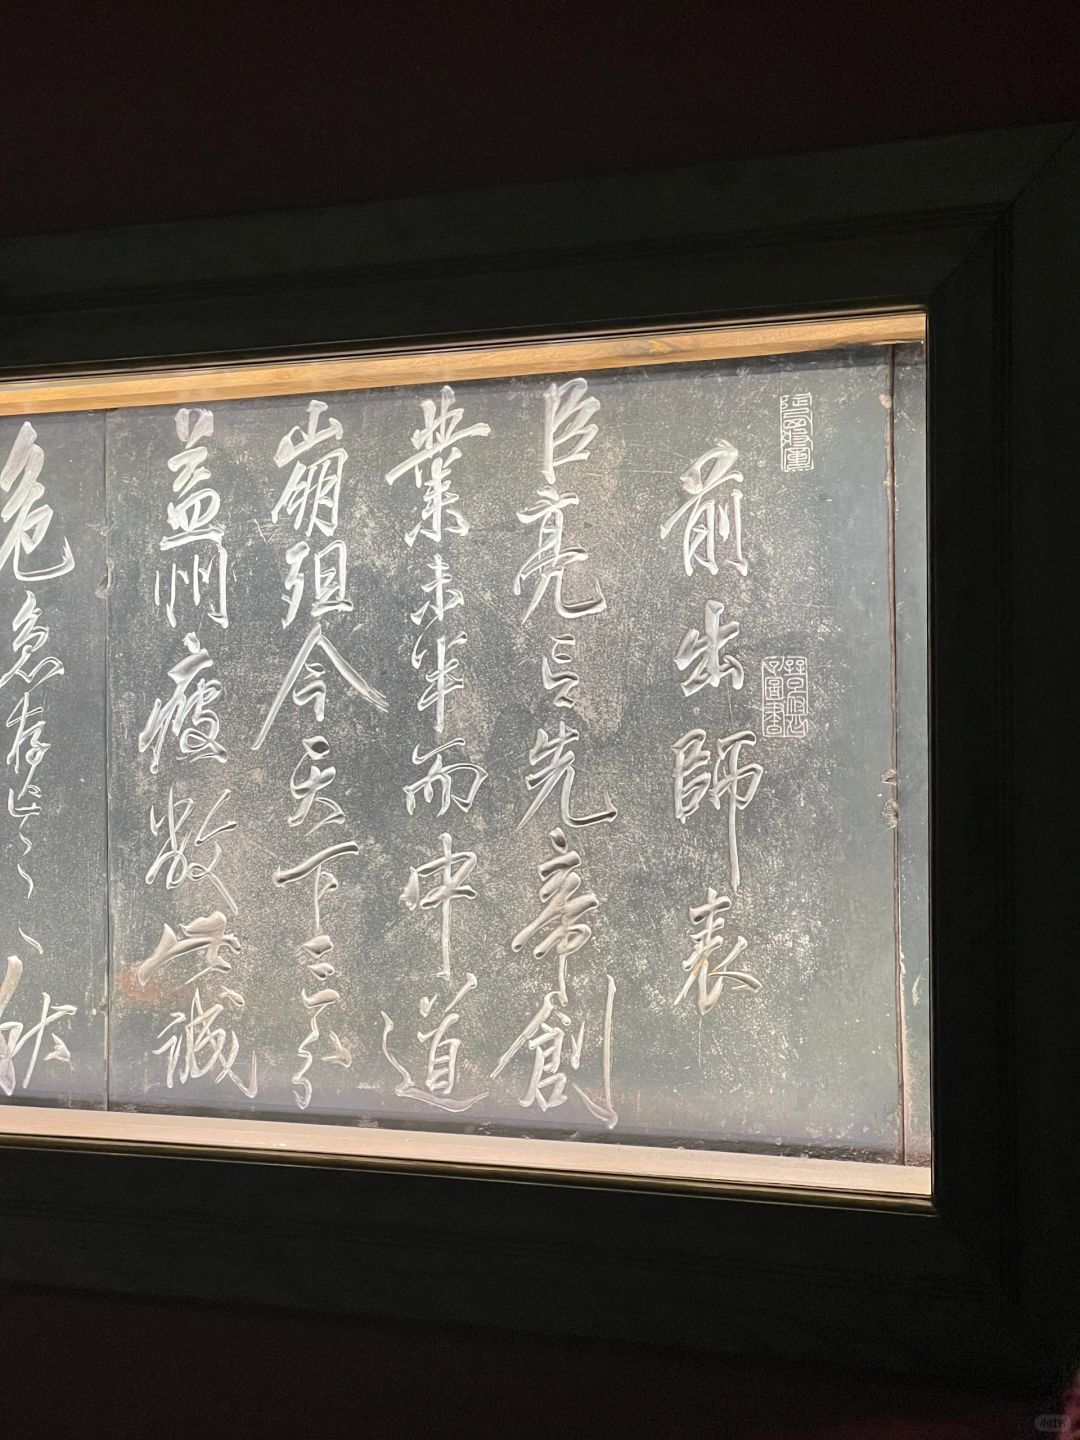 前出師表
臣亮言先帝創
業未半而中道
崩殂今天下三分
益州疲敝此誠
危急存亡之秋
小红书